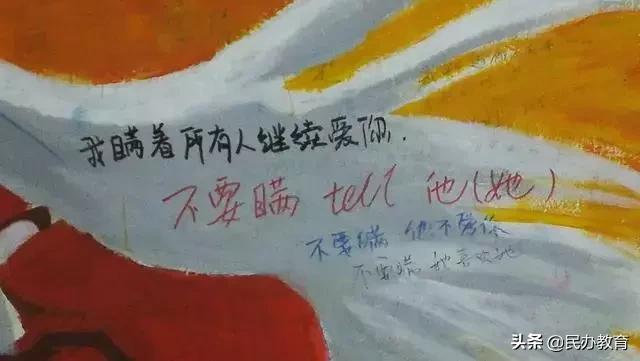 我瞒着所有人继续爱你.
不要瞒 tell 他(她)
不要瞒 他不爱你
不要瞒 她喜欢她
头条 @民办教育